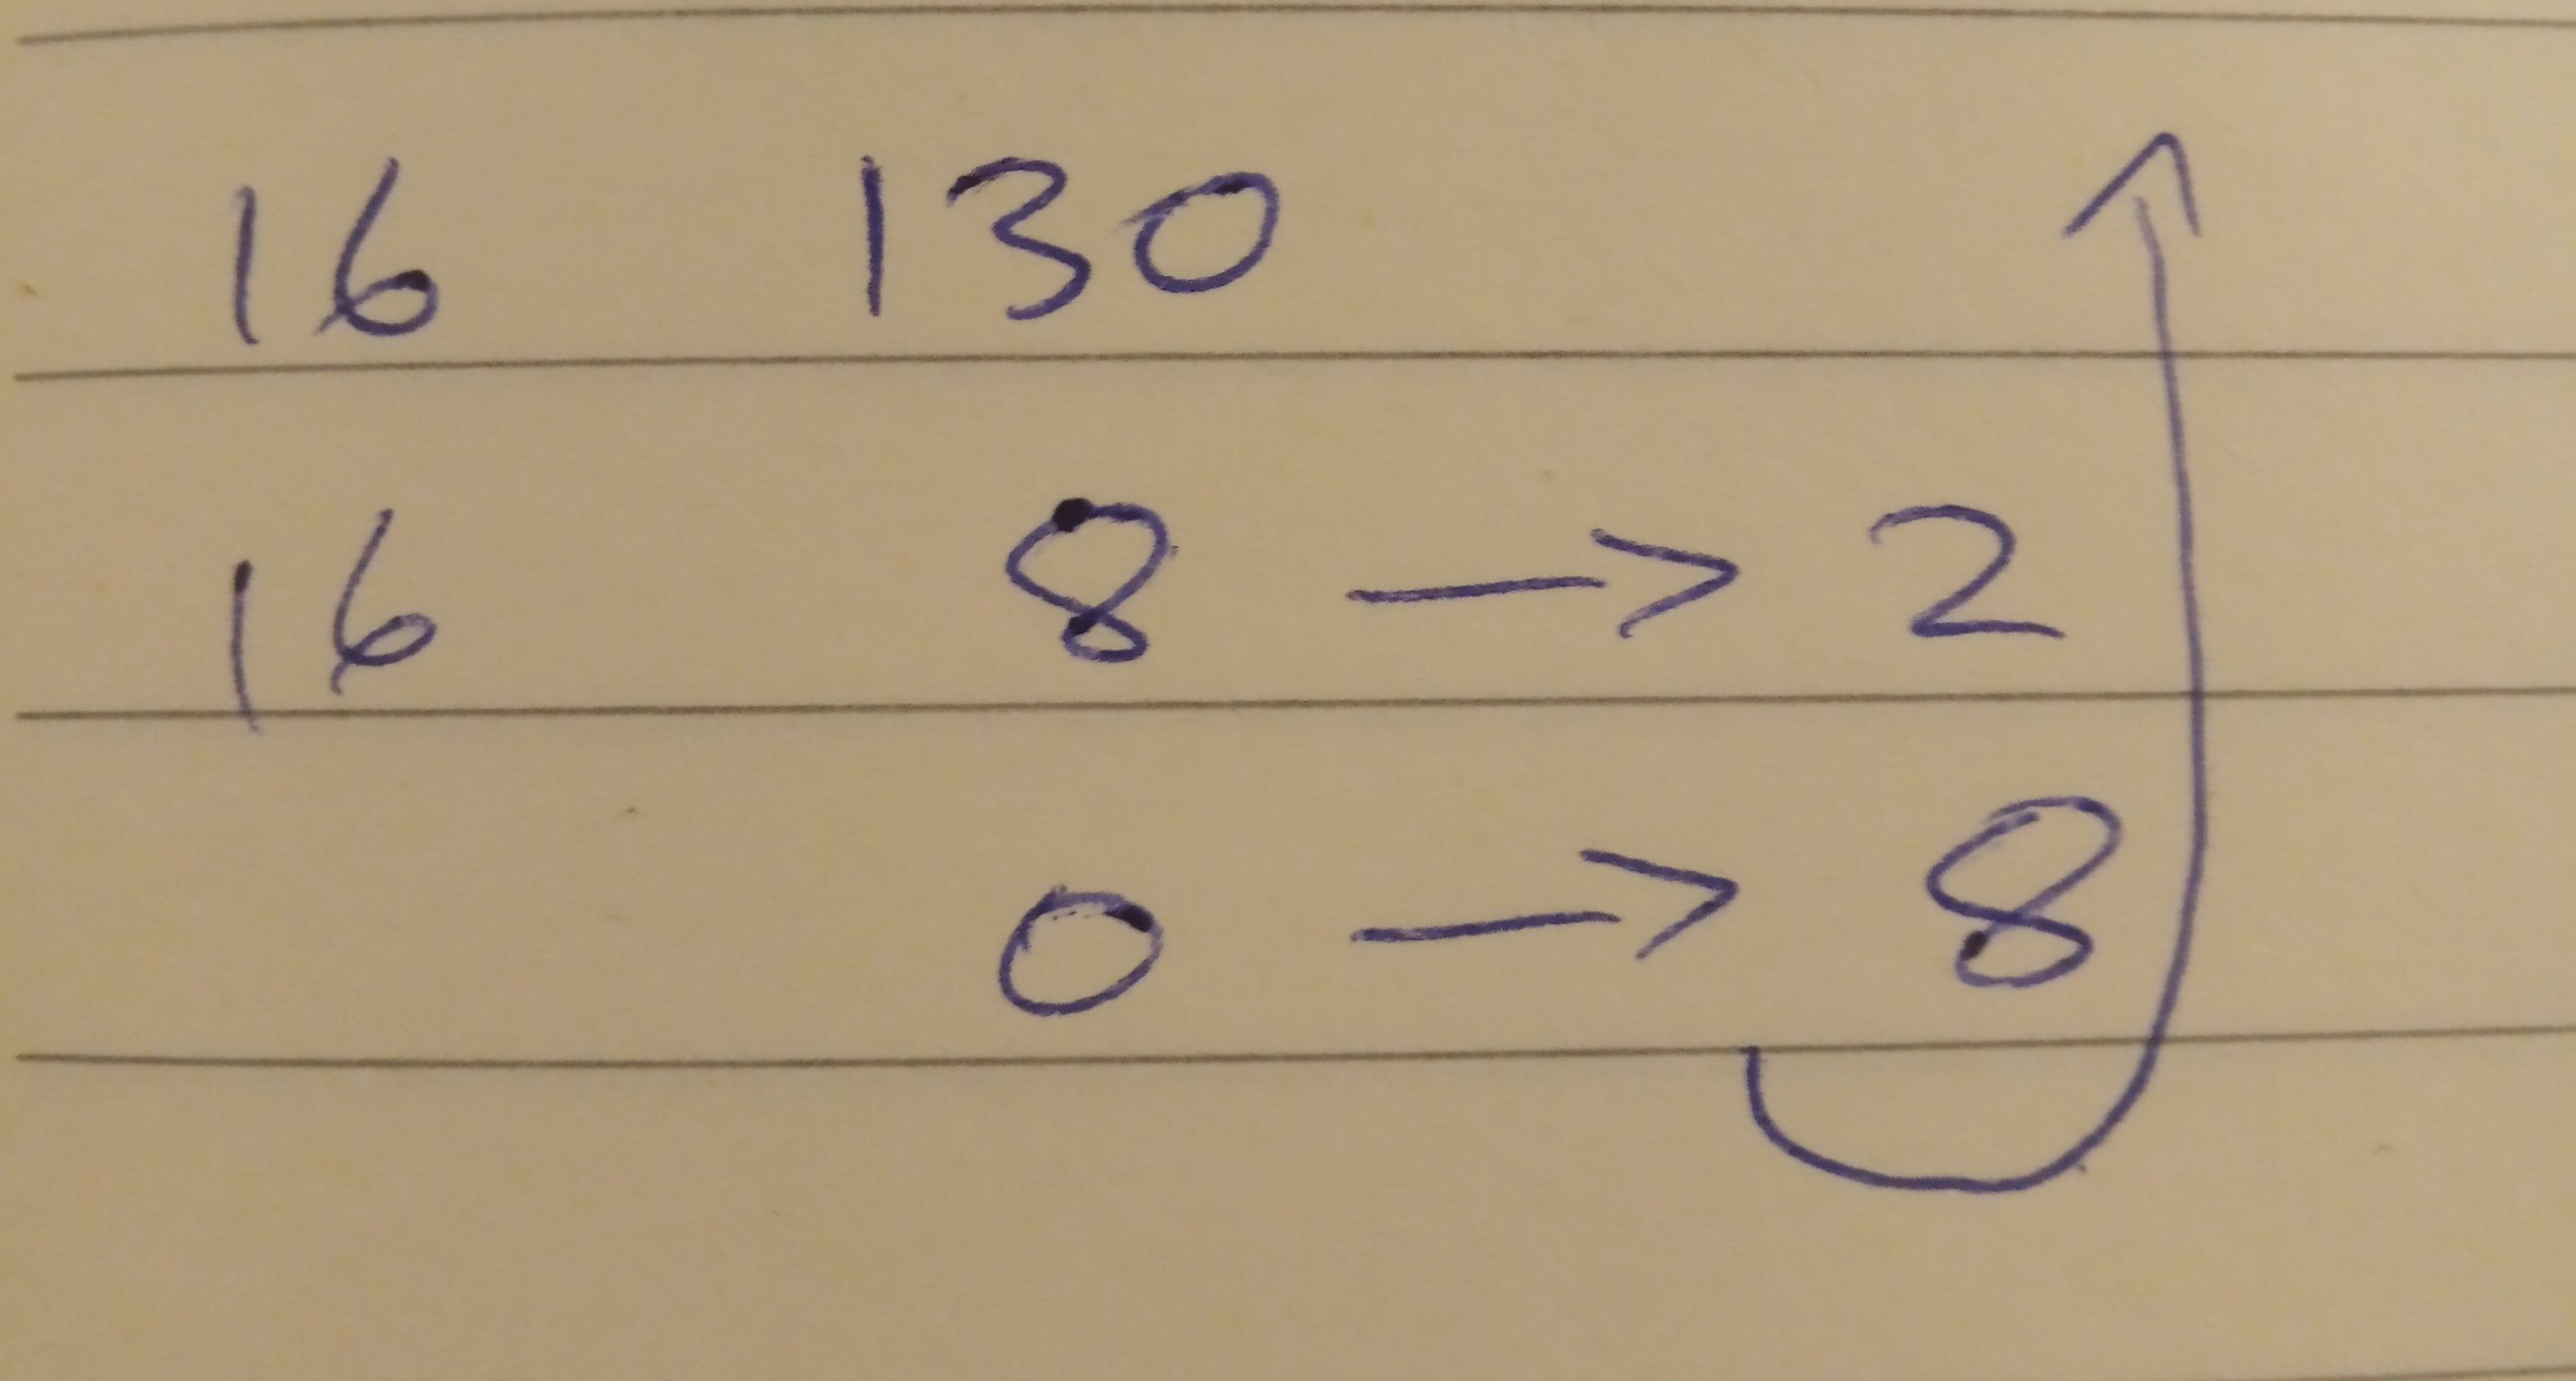 16 130
16 8 → 2
0 → 8